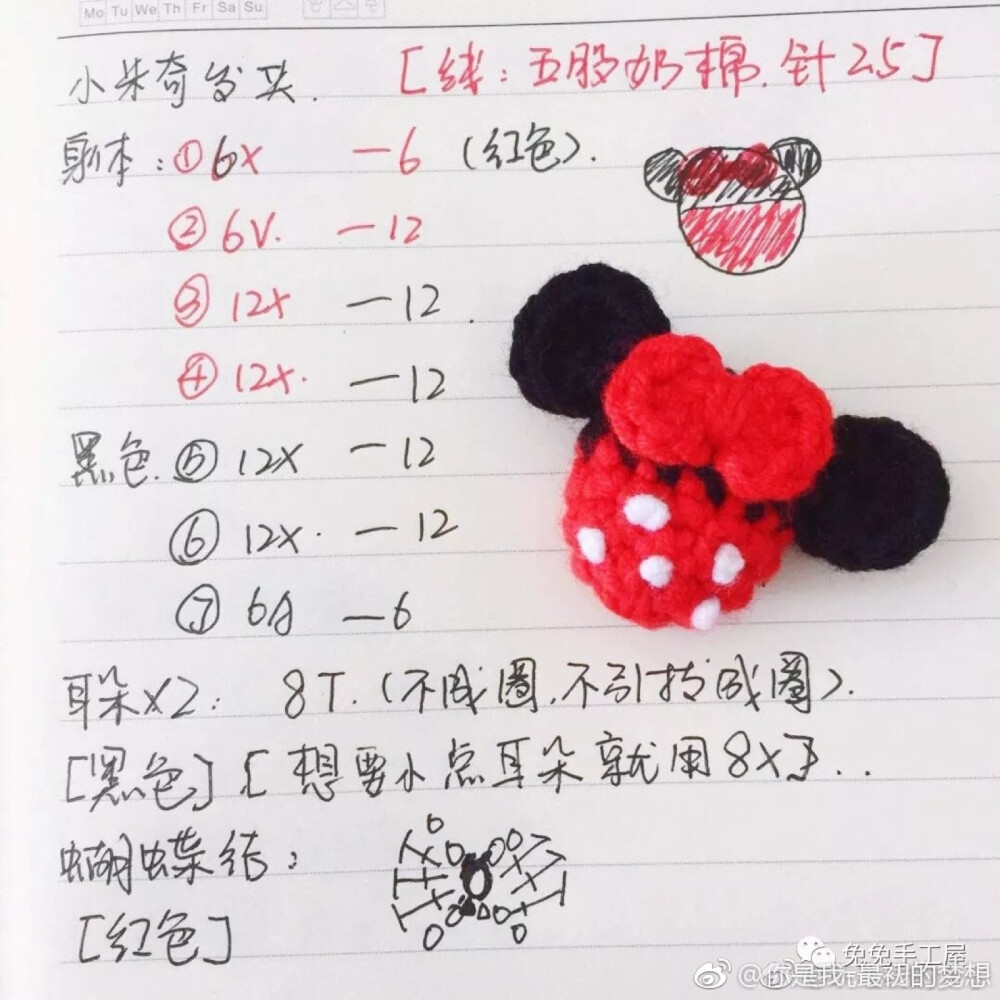 Mo Tu We Th Fr Sa Su
小米奇发夹. [线:五股奶棉.针2.5]
身体:①6X —6 (红色).
②6V. —12
③12X —12.
④12X. —12
黑色.⑤12X —12
⑥12X. —12
⑦6A —6
耳朵X2: 8T.(不成圈.不引拔成圈).
[黑色][想要小点耳朵就用8X]...
蝴蝶结:
[红色]
兔兔手工屋
@你是我最初的梦想